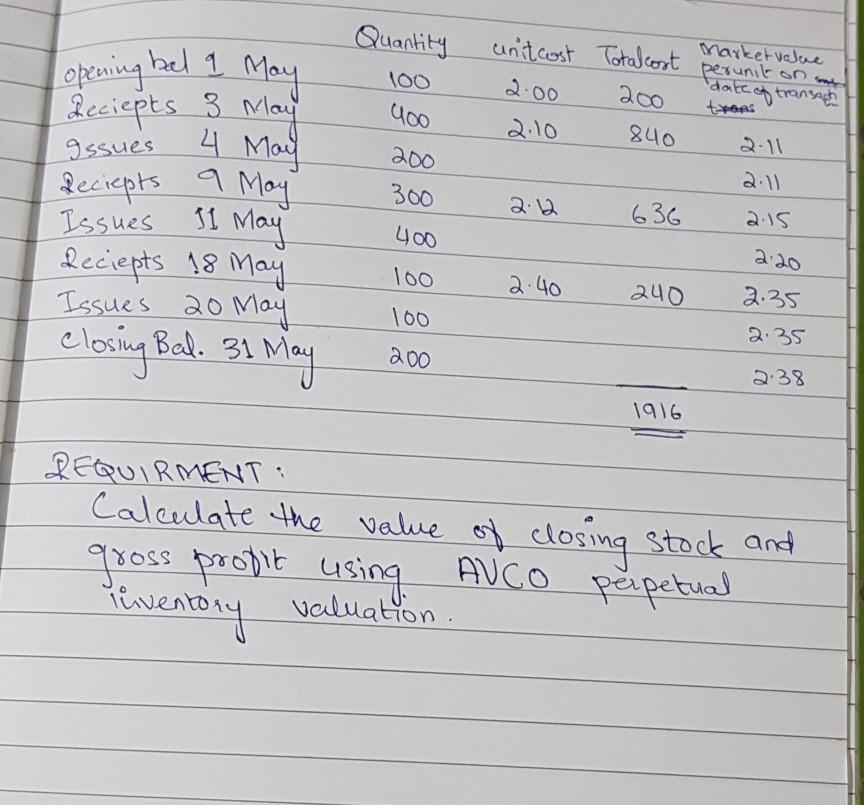 Quantity unit cost Total cost Market value
per unit on
date of transach
opening bal 1 May 100 2.00 200
Reciepts 3 May 400 2.10 840 2.11
Issues 4 May 200 2.11
Reciepts 9 May 300 2.12 636 2.15
Issues 11 May 400 2.20
Reciepts 18 May 100 2.40 240 2.35
Issues 20 May 100 2.35
Closing Bal. 31 May 200 2.38
1916
REQUIRMENT:
Calculate the value of closing stock and
gross profit using AVCO perpetual
inventory valuation.